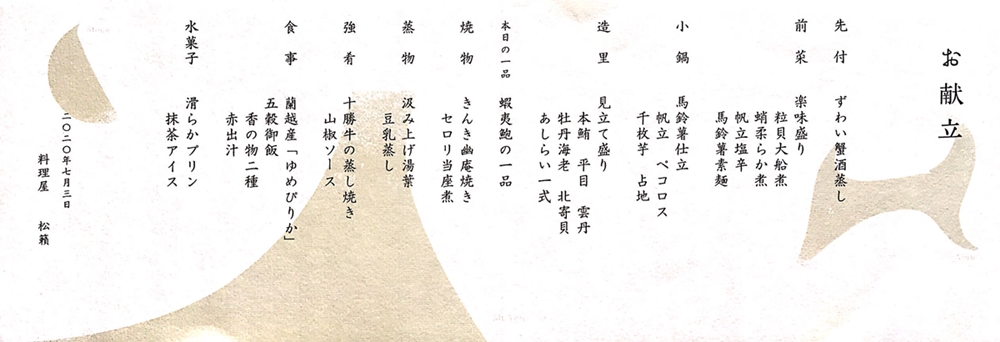 お献立
先付 ずわい蟹酒蒸し
前菜 楽味盛り
粒貝大船煮
蛸柔らか煮
帆立塩辛
馬鈴薯素麺
小鍋 馬鈴薯仕立
帆立 ペコロス
千枚芋 占地
造里 見立て盛り
本鮪 平目 雲丹
牡丹海老 北寄貝
あしらい一式
本日の一品 蝦夷鮑の一品
焼物 きんき幽庵焼き
セロリ当座煮
蒸物 汲み上げ湯葉
豆乳蒸し
強肴 十勝牛の蒸し焼き
山椒ソース
食事 蘭越産「ゆめぴりか」
五穀御飯
香の物二種
赤出汁
水菓子 滑らかプリン
抹茶アイス
二〇二〇年七月三日
料理屋 松籟